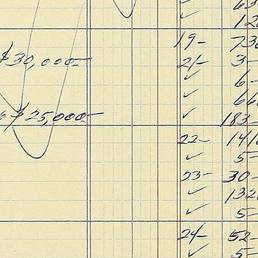 ✓ 63
✓ 12
19- 730
$30,000- 21- 3-
✓ 6-
✓ 66
$25,000- ✓ 183-
22- 1410
✓ 5-
23- 30-
✓ 132
✓ 5-
24- 52-
✓ 5